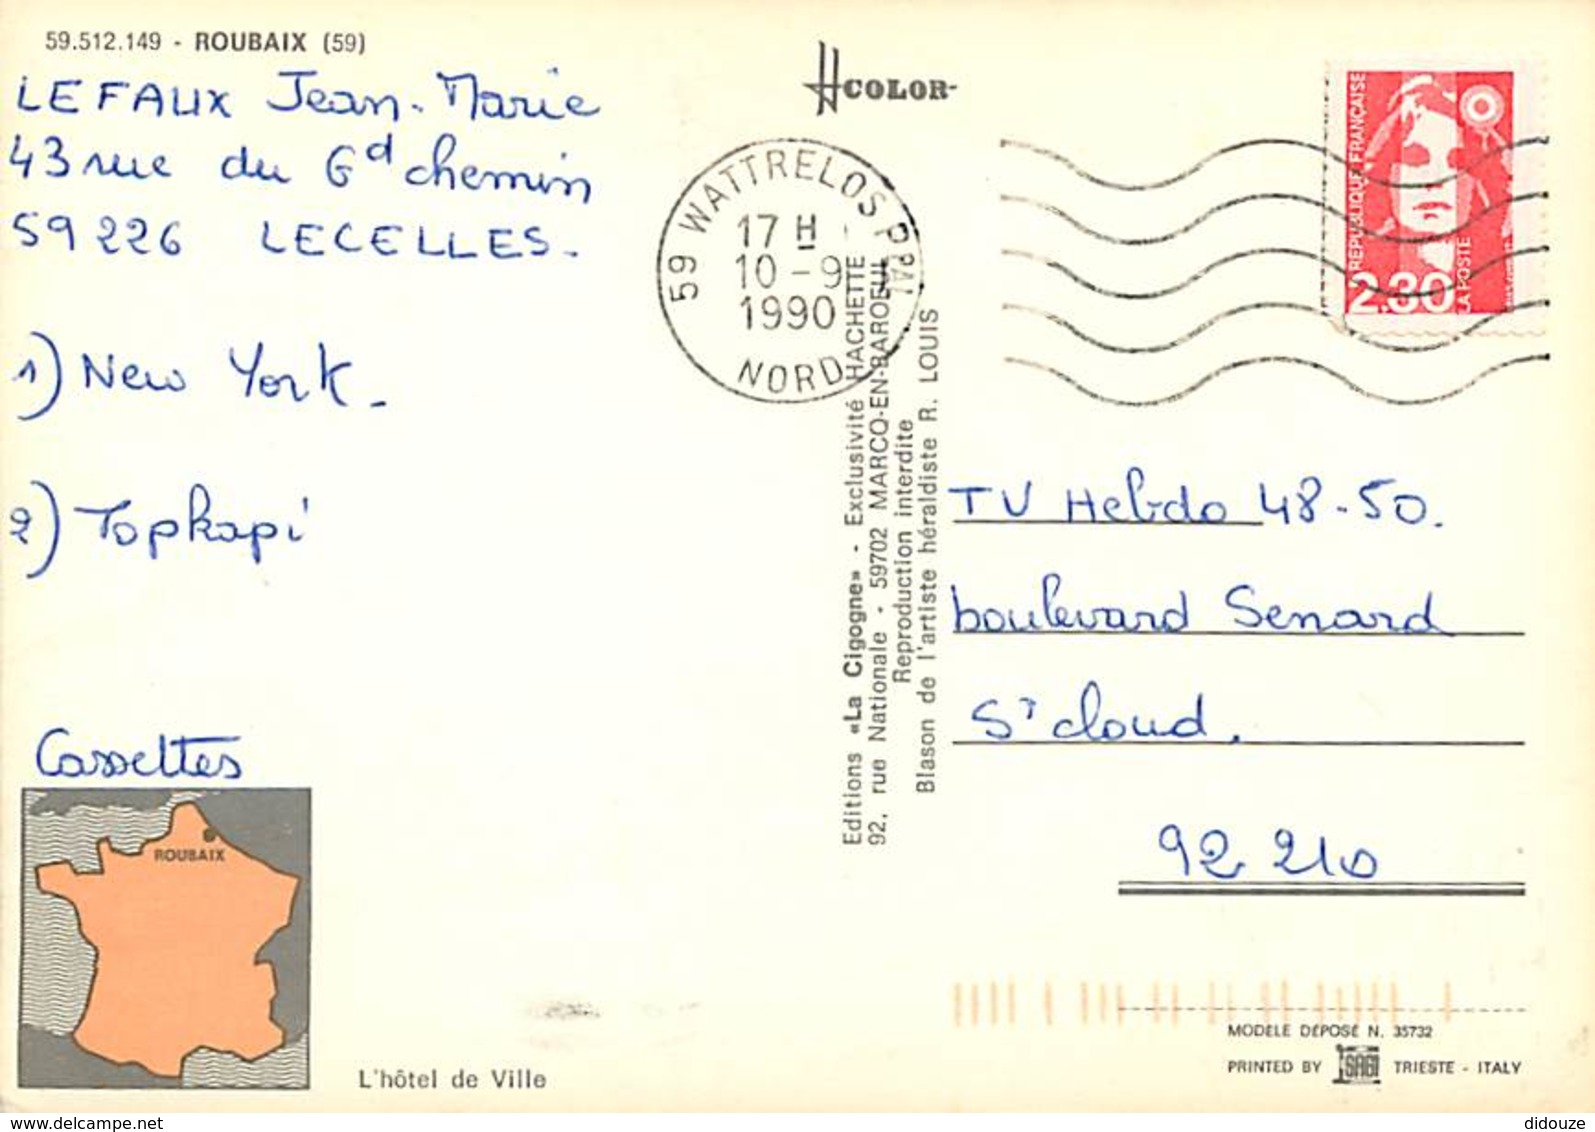 59.512.149 - ROUBAIX (59)
LEFAUX Jean-Marie
43 rue du Gd chemin
59226 LECELLES.
1) New York.
2) Topkapi
Cassettes
ROUBAIX
L'hôtel de Ville
COLOR
59 WATTRELOS PPAL
17 H
10 - 9
1990
NORD
Editions «La Cigogne» - Exclusivité HACHETTE
92, rue Nationale - 59702 MARCQ-EN-BAROEUL
Reproduction interdite
Blason de l'artiste héraldiste R. LOUIS
REPUBLIQUE FRANÇAISE
2.30
LA POSTE
TV Hebdo 48-50.
boulevard Senard
St cloud.
92 210
MODELE DEPOSE N. 35732
PRINTED BY SAGI TRIESTE - ITALY
delcampe.net
didouze